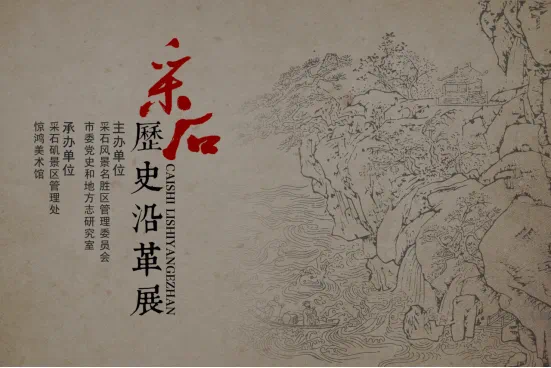 采石
歷史沿革展
CAISHI LISHIYANGEZHAN
主办单位
采石风景名胜区管理委员会
市委党史和地方志研究室
承办单位
采石矶景区管理处
惊鸿美术馆